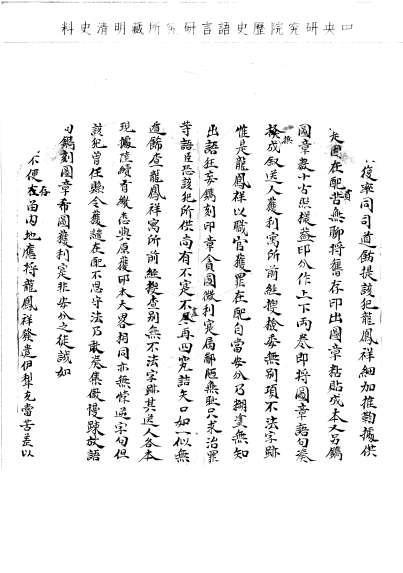 中央研究院歷史語言研究所藏明清史料
復率同司道飭提該犯龍鳳祥細加推鞫據供
夫因在配皆無聊將舊存印出圖章黏貼成本又另鐫
國章數十方照樣蓋印分作上下兩卷即將圖章語句湊
撰成叙送人獲利寓所前經搜檢委無別項不法字跡
惟是龍鳳祥以職官獲罪在配自當安分乃糊塗無知
出語狂妄鐫刻印章貪圖微利寔屬鄙陋無耻只求治罪
等語臣恐該犯所供尚有不寔不盡再四究詰矢口如一似無
遁飾查龍鳳祥寓所前經搜查別無不法字跡其送人各本
現據陸續首繳悉與原獲印本大畧相同亦無悖逆字句但
該犯曾任縣令獲譴在配不思守法乃敢葵集傲慢踈放語
句鐫刻圖章希圖獲利寔非安分之徒誠如
不便存留內地應將龍鳳祥發遣伊犁充當苦差以